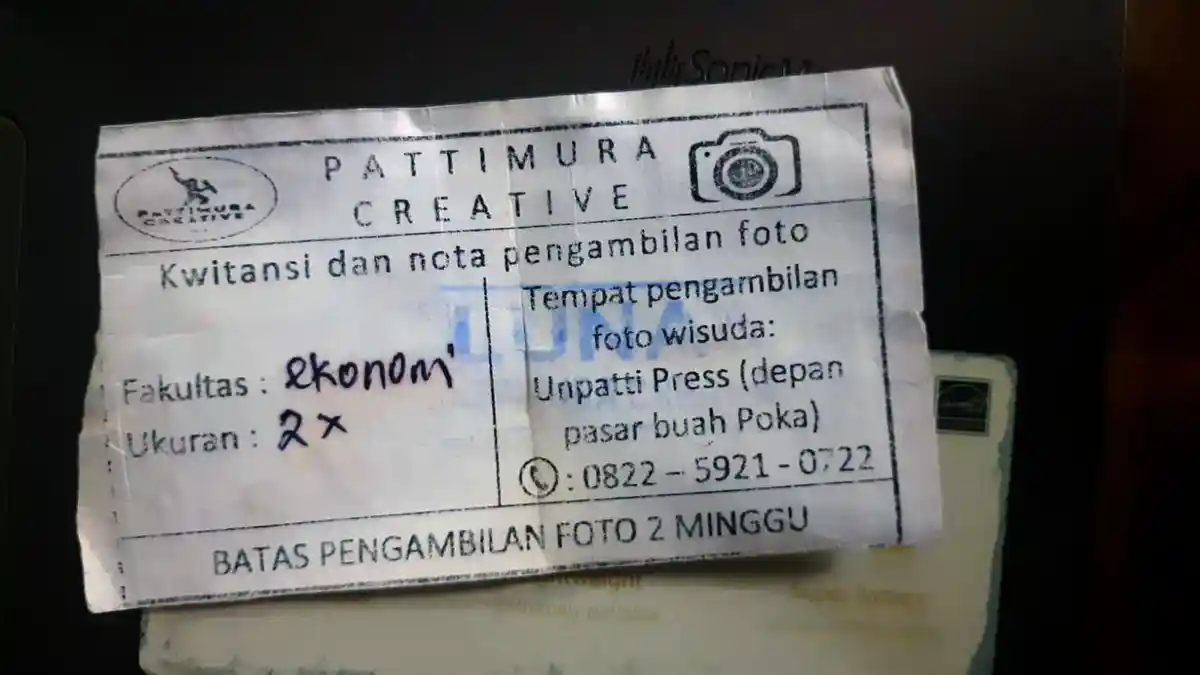 PATTIMURA
CREATIVE
PATTIMURA
CREATIVE
Kwitansi dan nota pengambilan foto
Fakultas : ekonomi
Ukuran : 2x
LUNA
Tempat pengambilan
foto wisuda:
Unpatti Press (depan
pasar buah Poka)
: 0822 – 5921 - 0722
BATAS PENGAMBILAN FOTO 2 MINGGU